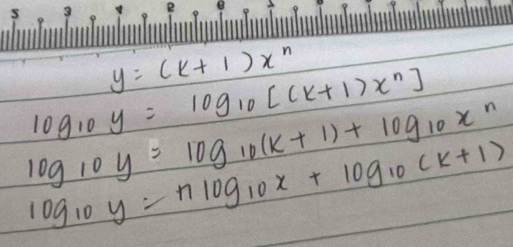 y = (k+1)x^n
log10 y = log10 [(k+1)x^n]
log10 y = log10(k+1) + log10 x^n
log10 y = n log10 x + log10 (k+1)